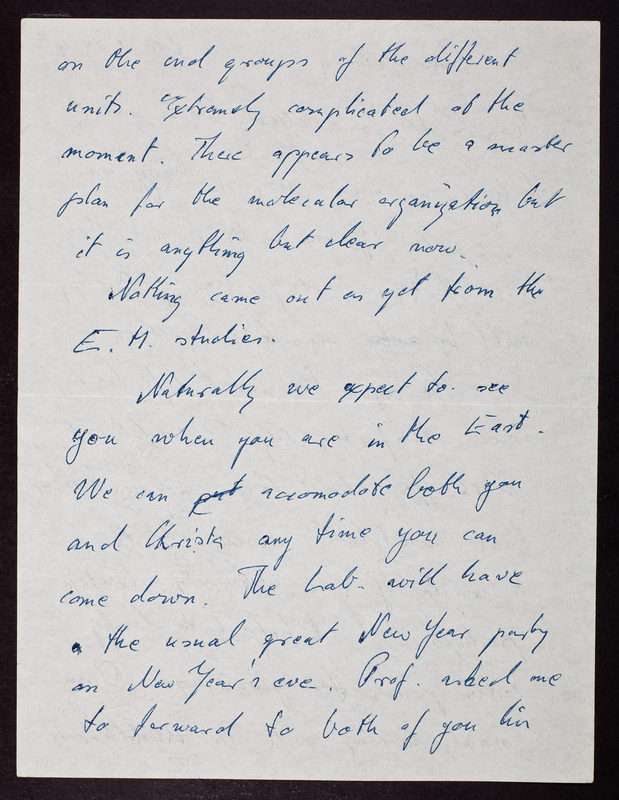 on the end groups of the different
units. Extremely complicated at the
moment. There appears to be a master
plan for the molecular organization but
it is anything but clear now.
Nothing came out as yet from the
E. M. studies.
Naturally we expect to see
you when you are in the East.
We can put accomodate both you
and Christa any time you can
come down. The Lab. will have
the usual great New Year party
on New Year's eve. Prof. asked me
to forward to both of you his